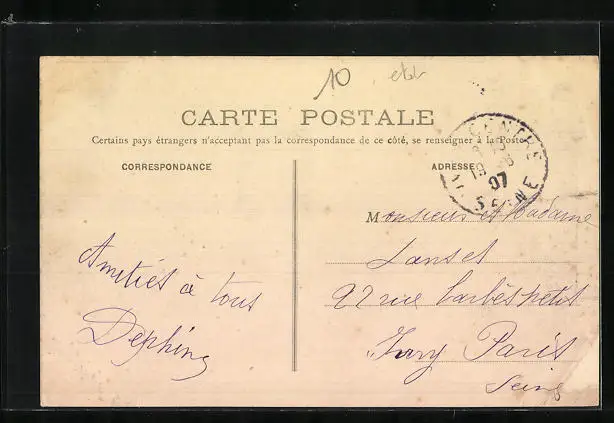 10
CARTE POSTALE
Certains pays étrangers n'acceptant pas la correspondance de ce côté, se renseigner à la Poste
CORRESPONDANCE
ADRESSE
CENTRE
19
07
SEINE
Monsieur et Madame
Lanset
22 rue Barbès
Ivry Paris
Seine
Amitiés à tous